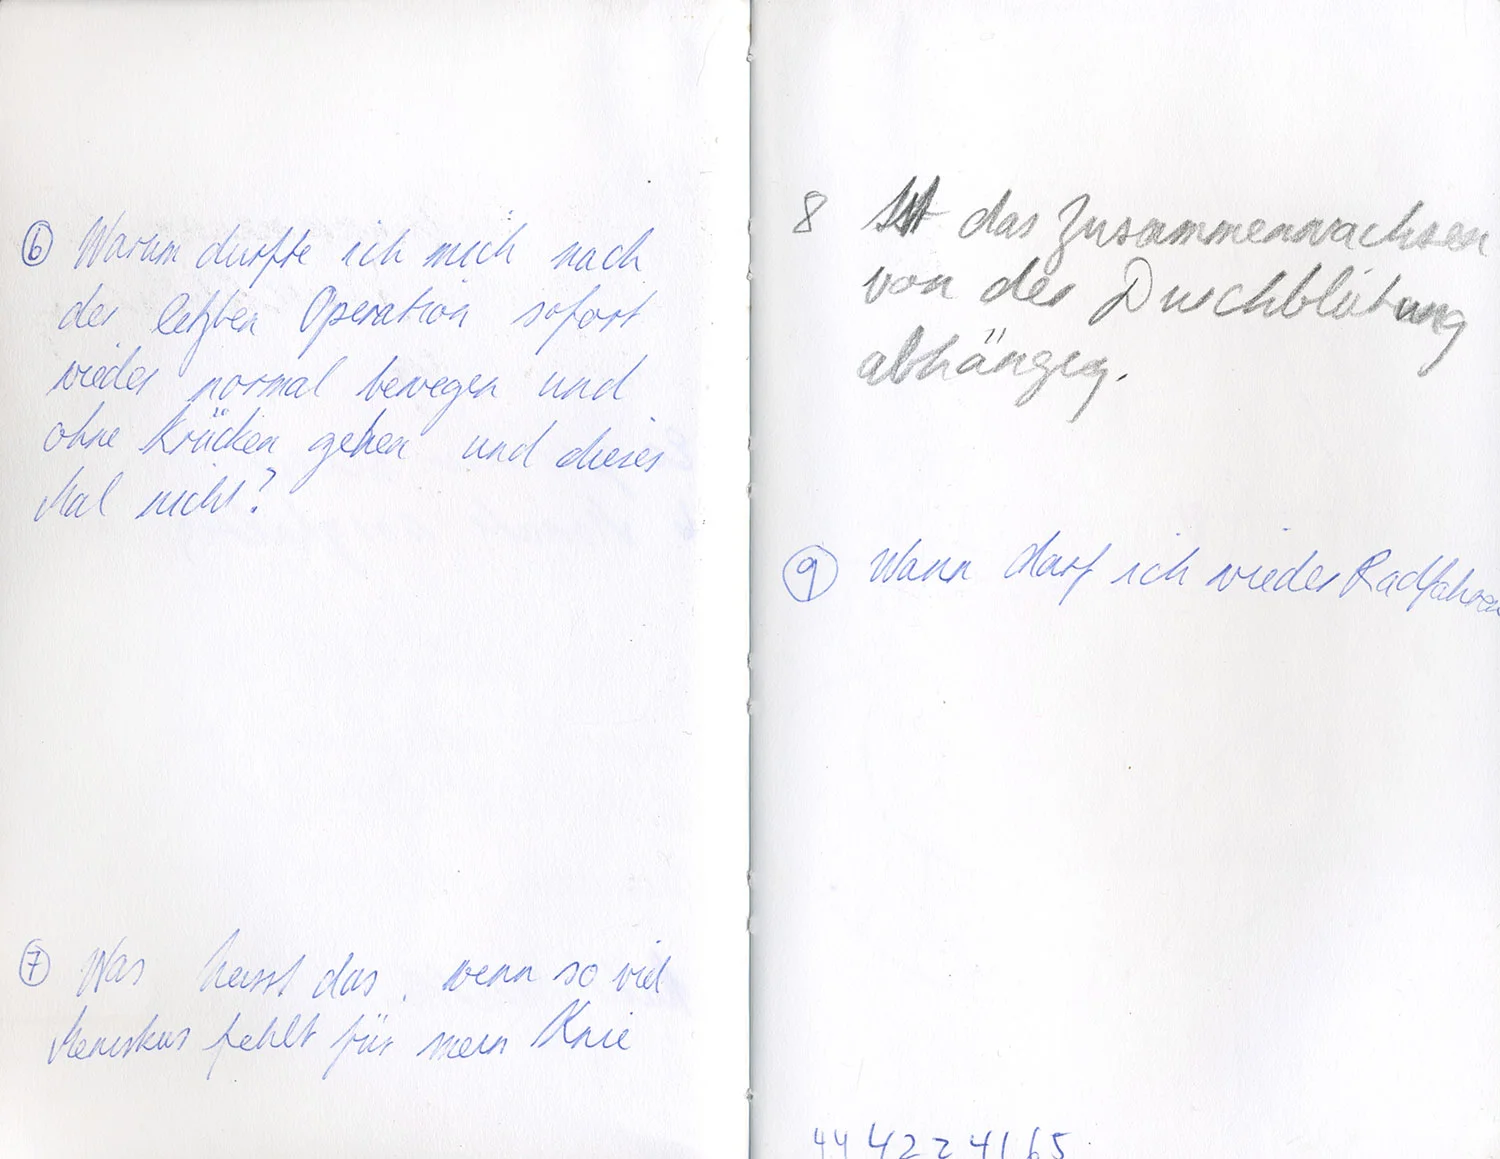 6 Warum durfte ich mich nach
der letzten Operation sofort
wieder normal bewegen und
ohne Krücken gehen und dieses
Mal nicht?
7 Was heisst das, wenn so viel
Meniskus fehlt für mein Knie
8 Ist das Zusammenwachsen
von der Durchblutung
abhängig.
9 Wann darf ich wieder Radfahren
44 4224165